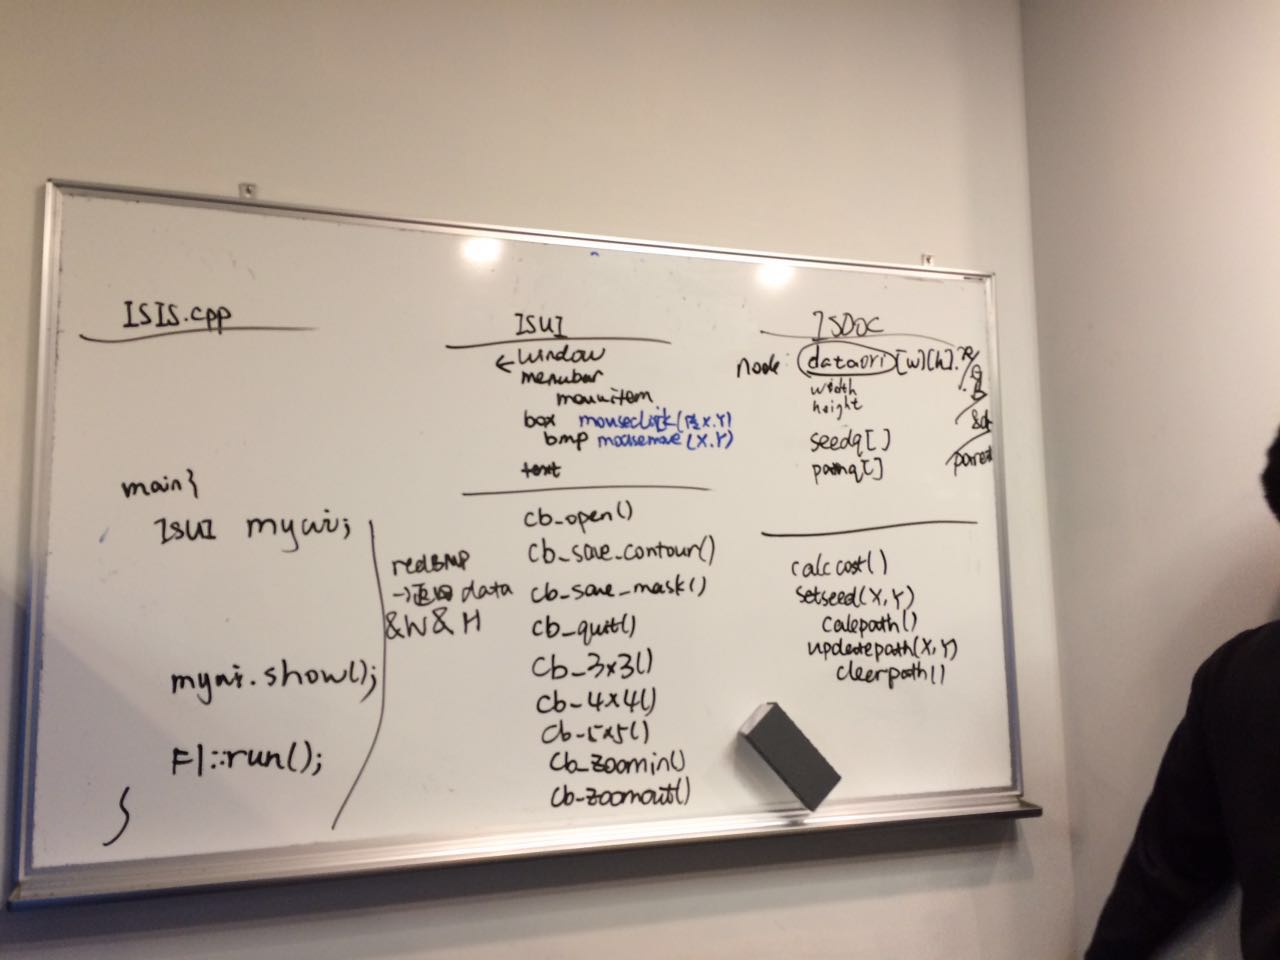 ISIS.cpp
main{
ISUI myui;
myui.show();
Fl::run();
}
redBMP
→返回 data
&W&H
ISUI
← window
menubar
menuitem
box mouseclick( X.Y)
bmp mousemove(X.Y)
text
cb_open()
cb_save_contour()
cb_save_mask()
cb_quit()
cb_3x3()
cb_4x4()
cb_5x5()
cb_zoomin()
cb_zoomout()
ISDOC
Node: dataori[w][h].
width
height
seedq[]
pathq[]
calccost()
setseed(X,Y)
calcpath()
updatepath(X,Y)
cleerpath()